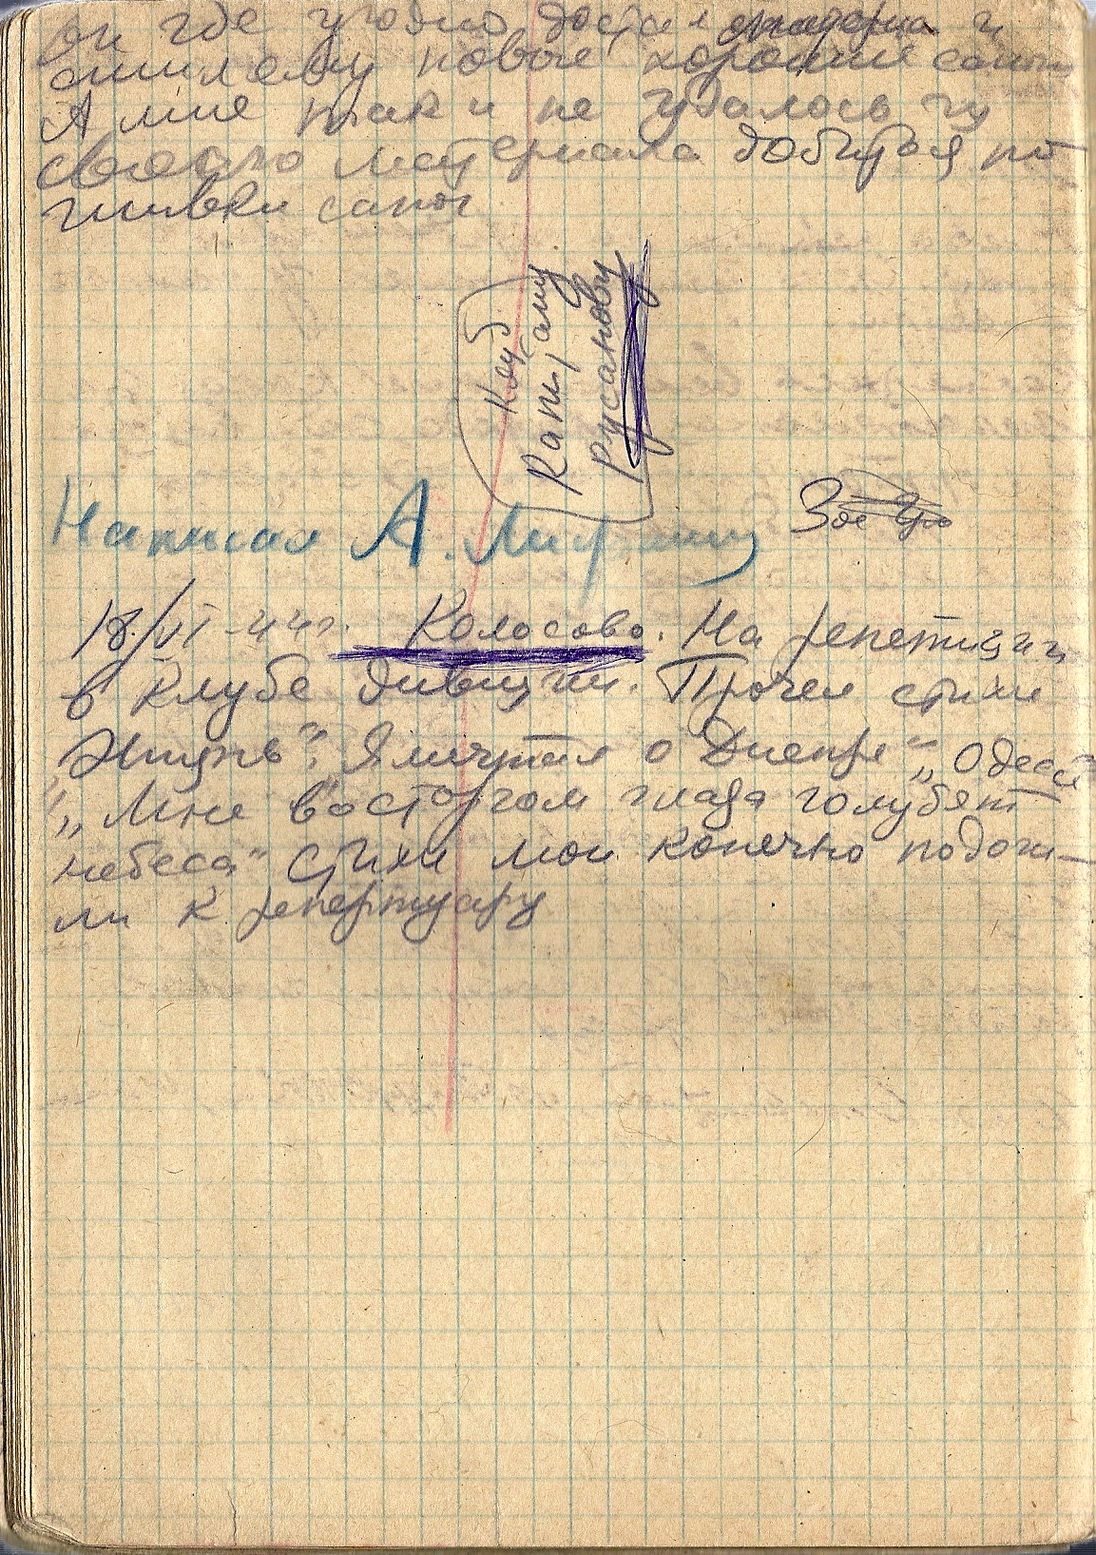 он где угодно достал материал и
сшил ему новые хорошие сапоги
А мне так и не удалось из
своего материала добиться по
шивки сапог
Клуб
Капитану
Русанову
Написал А.
18/VI-44г. Колосово. На репетиции
в клубе дивизии. Прочел стихи
„Жизнь“, „Я мечтал о Днепре“, „Одесса“
„Мне восторгом глаза голубят
небеса“ Стихи мои конечно подош-
ли к репертуару